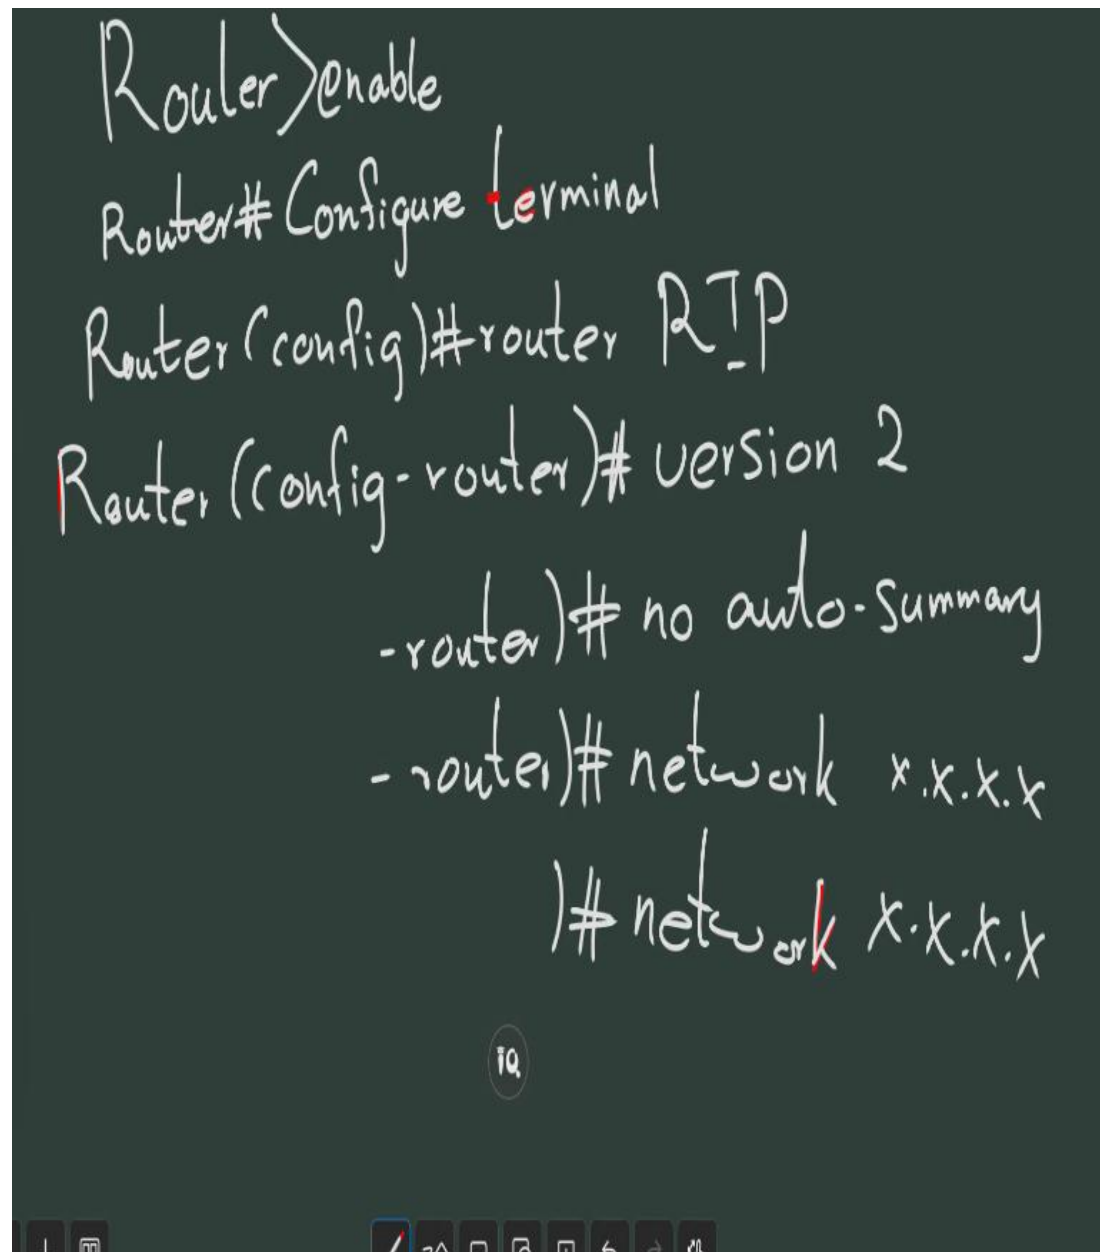 Router>enable
Router# Configure terminal
Router(config)#router RIP
Router(config-router)# version 2
-router)# no auto-summary
-router)# network x.x.x.x
)# network x.x.x.x
iQ